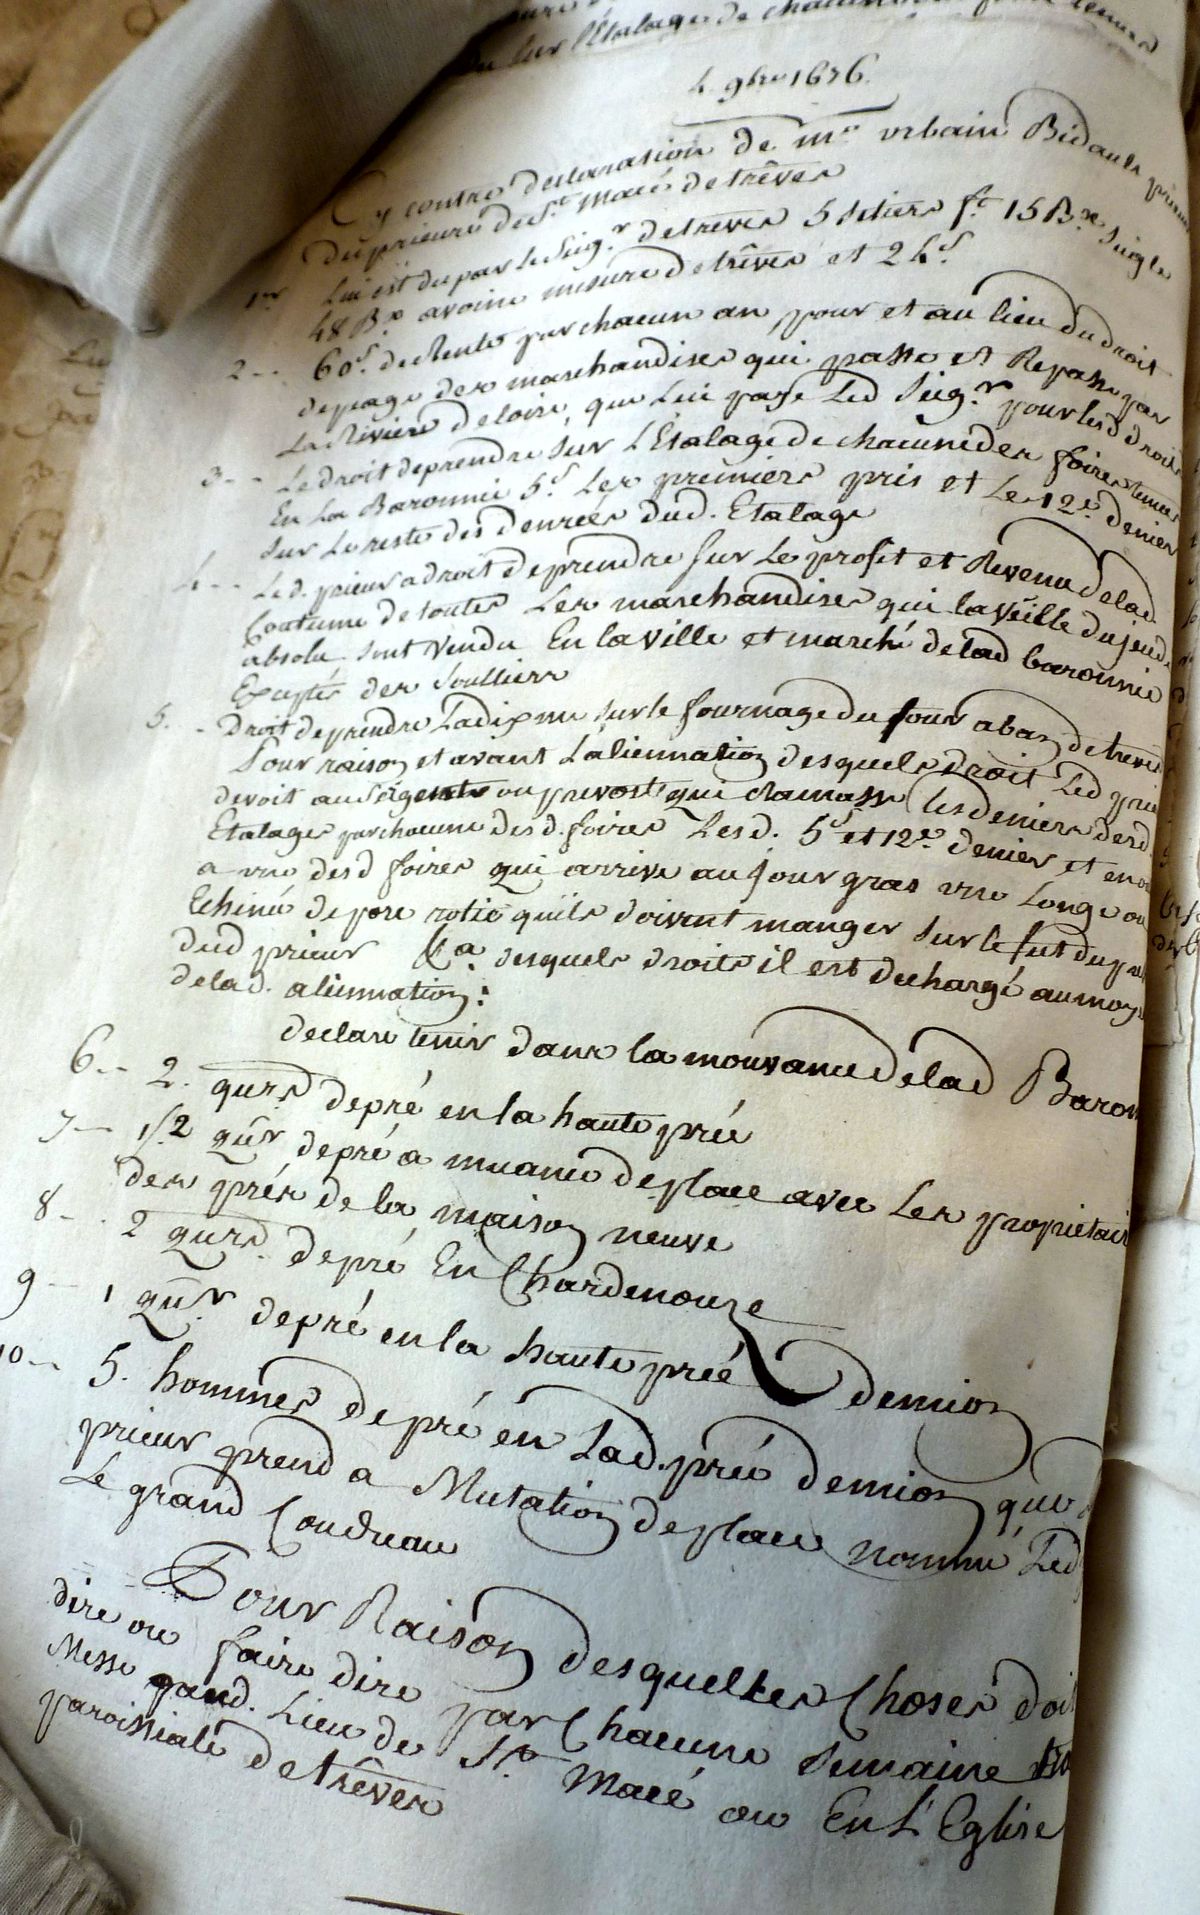 sur l'Etalage de chacune
4. 9bre 1676.
Cy contre declaration de me urbain Bidault prieur
du prieuré de St. Macé de trêves
1er Lui est du par le Seigr. de treves 5 setiers ft. 15 Bx. seigle
48 Bx. avoine mesure de trêves et 24 s.
2 -- 60 s. de Rente par chacun an pour et au lieu du droit
de peage des marchandises qui passe et Repasse par
La Riviere de loire, que Lui paye Led Seigr. pour lesd droits
3 -- Le droit de prendre sur L'Etalage de chacune des foires tenues
En La Baronnie 5 s. Les premiers pris et Le 12e. denier
sur Le reste des denrées dud. Etalage
4 -- Led. prieur a droit de prendre sur Le profit et Revenu de lad
Coutume de toutes Les marchandises qui la Veille du jeudi
absolu sont Vendu En la Ville et marché de lad baronnie
Exceptés des Soulliers
5. - Droit de prendre La dixme sur le fournage du four a ban de treves
Pour raison et avant L'aliennation desquels Droit Led prieur
devoit au Sergent ou prevost qui ramasse les deniers desd.
Etalages par chacune desd. foires Lesd. 5 s. et 12e. denier et
a une desd foires qui arrive au jour gras une Longe ou
Echinée de porc rotie quils doivent manger sur le fut du
dud prieur desquels droits il est dechargé au moyen
de lad. aliennation:
declare tenir dans la mouvance de lad Baronnie
6 -- 2. qurs de pré en la haute prée
7 -- 1/2 qur de pré a muance de place avec Les proprietaires
des prés de la maison neuve
8 -- 2 qurs de pré En Chardenouze
9 -- 1 qur de pré en la haute prée demion
10 -- 5. hommes de pré en Lad. prée demion que
prieur prend a Mutation de place nommé Led
Le grand Coudreau
Pour Raison desquelles Choses doit
dire ou faire dire par Chacune semaine
Messe aud. Lieu de St. Macé ou En L'Eglise
paroissiale de trêves